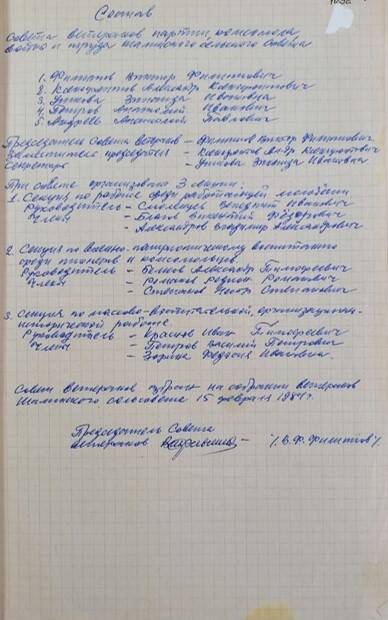 Состав
Совета ветеранов партии, комсомола,
войны и труда Шалинского сельского Совета
1. Филиппов Виктор Филиппович
2. Кондратьев Александр Кондратьевич
3. Зинаида Ивановна
4. Анатолий Иванович
5. Андреев Анатолий Павлович
Председатель Совета Ветеранов – Филиппов Виктор Филиппович
Заместитель председателя – Кондратьев Алек-др Кондратьевич
Секретарь – Зинаида Ивановна
При совете организовано 3 секции:
1. Секция по работе среди работающей молодежи
Руководитель – Иванович
Члены – Фёдорович
– Александров Владимир Александрович
2. Секция по военно-патриотическому воспитанию
среди пионеров и комсомольцев
Руководитель – Александр Тимофеевич
Члены – Романов Родион Романович
– Степанов Пётр Степанович
3. Секция по массово-воспитательной, организационно-
исторической работе
Руководитель – Краснов Иван Тимофеевич
Члены – Петров Василий Петрович
– Зорина Федосия Ивановна.
Совет Ветеранов избран на собрании Ветеранов
сельсовета 15 февраля 1987 г.
Председатель Совета
Ветеранов – /.В.Ф. Филиппов/.